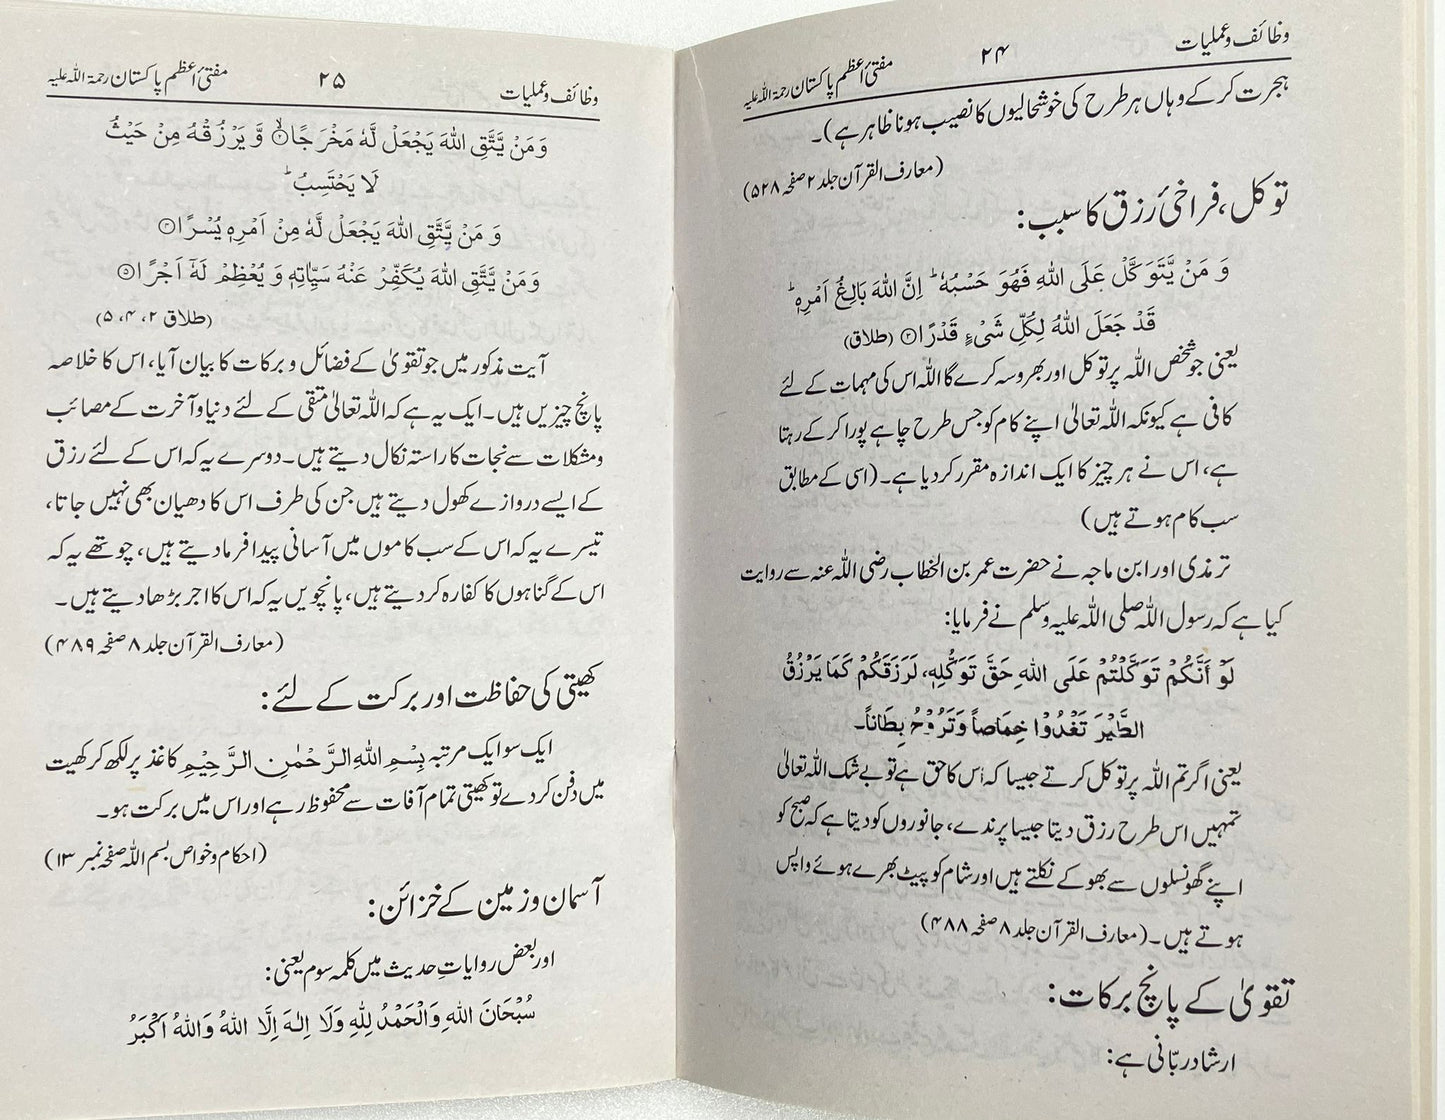 وظائف وعملیات
۲۴
مفتیٔ اعظم پاکستان رحمۃ اللہ علیہ
ہجرت کرکے وہاں ہر طرح کی خوشحالیوں کا نصیب ہونا ظاہر ہے)۔
(معارف القرآن جلد ۲ صفحہ ۵۲۸)
توکل، فراخیٔ رزق کا سبب:
وَ مَنْ یَّتَوَکَّلْ عَلَی اللہِ فَھُوَ حَسْبُہٗ ؕ اِنَّ اللہَ بَالِغُ اَمْرِہٖ ؕ
قَدْ جَعَلَ اللہُ لِکُلِّ شَیْءٍ قَدْرًا ﴿۳﴾ (طلاق)
یعنی جو شخص اللہ پر توکل اور بھروسہ کرے گا اللہ اس کی مہمات کے لئے
کافی ہے کیونکہ اللہ تعالیٰ اپنے کام کو جس طرح چاہے پورا کرکے رہتا
ہے، اس نے ہر چیز کا ایک اندازہ مقرر کردیا ہے۔ (اسی کے مطابق
سب کام ہوتے ہیں)
ترمذی اور ابن ماجہ نے حضرت عمر بن الخطاب رضی اللہ عنہ سے روایت
کیا ہے کہ رسول اللہ صلی اللہ علیہ وسلم نے فرمایا:
لَوْ أَنَّکُمْ تَوَکَّلْتُمْ عَلَی اللہِ حَقَّ تَوَکُّلِہٖ، لَرَزَقَکُمْ کَمَا یَرْزُقُ
الطَّیْرَ تَغْدُوْا خِمَاصاً وَتَرُوْحُ بِطَاناً۔
یعنی اگر تم اللہ پر توکل کرتے جیسا کہ اس کا حق ہے تو بے شک اللہ تعالیٰ
تمہیں اس طرح رزق دیتا جیسا پرندے، جانوروں کو دیتا ہے کہ صبح کو
اپنے گھونسلوں سے بھوکے نکلتے ہیں اور شام کو پیٹ بھرے ہوئے واپس
ہوتے ہیں۔ (معارف القرآن جلد ۸ صفحہ ۴۸۸)
تقویٰ کے پانچ برکات:
ارشاد ربّانی ہے:
وظائف وعملیات
۲۵
مفتیٔ اعظم پاکستان رحمۃ اللہ علیہ
وَ مَنْ یَّتَّقِ اللہَ یَجْعَلْ لَّہٗ مَخْرَجًا ﴿۲﴾ وَّ یَرْزُقْہُ مِنْ حَیْثُ
لَا یَحْتَسِبُ ؕ
وَ مَنْ یَّتَّقِ اللہَ یَجْعَلْ لَّہٗ مِنْ اَمْرِہٖ یُسْرًا ﴿۴﴾
وَ مَنْ یَّتَّقِ اللہَ یُکَفِّرْ عَنْہُ سَیِّاٰتِہٖ وَ یُعْظِمْ لَہٗٓ اَجْرًا ﴿۵﴾
(طلاق ۲، ۴، ۵)
آیت مذکور میں جو تقویٰ کے فضائل و برکات کا بیان آیا، اس کا خلاصہ
پانچ چیزیں ہیں۔ ایک یہ ہے کہ اللہ تعالیٰ متقی کے لئے دنیا و آخرت کے مصائب
و مشکلات سے نجات کا راستہ نکال دیتے ہیں۔ دوسرے یہ کہ اس کے لئے رزق
کے ایسے دروازے کھول دیتے ہیں جن کی طرف اس کا دھیان بھی نہیں جاتا،
تیسرے یہ کہ اس کے سب کاموں میں آسانی پیدا فرمادیتے ہیں، چوتھے یہ کہ
اس کے گناہوں کا کفارہ کردیتے ہیں، پانچویں یہ کہ اس کا اجر بڑھادیتے ہیں۔
(معارف القرآن جلد ۸ صفحہ ۴۸۹)
کھیتی کی حفاظت اور برکت کے لئے:
ایک سو ایک مرتبہ بِسْمِ اللہِ الرَّحْمٰنِ الرَّحِیْمِ کاغذ پر لکھ کر کھیت
میں دفن کردے تو کھیتی تمام آفات سے محفوظ رہے اور اس میں برکت ہو۔
(احکام و خواص بسم اللہ صفحہ نمبر ۱۳)
آسمان و زمین کے خزائن:
اور بعض روایاتِ حدیث میں کلمہ سوم یعنی:
سُبْحَانَ اللہِ وَالْحَمْدُ لِلّٰہِ وَلَا اِلٰہَ اِلَّا اللہُ وَاللہُ اَکْبَرُ